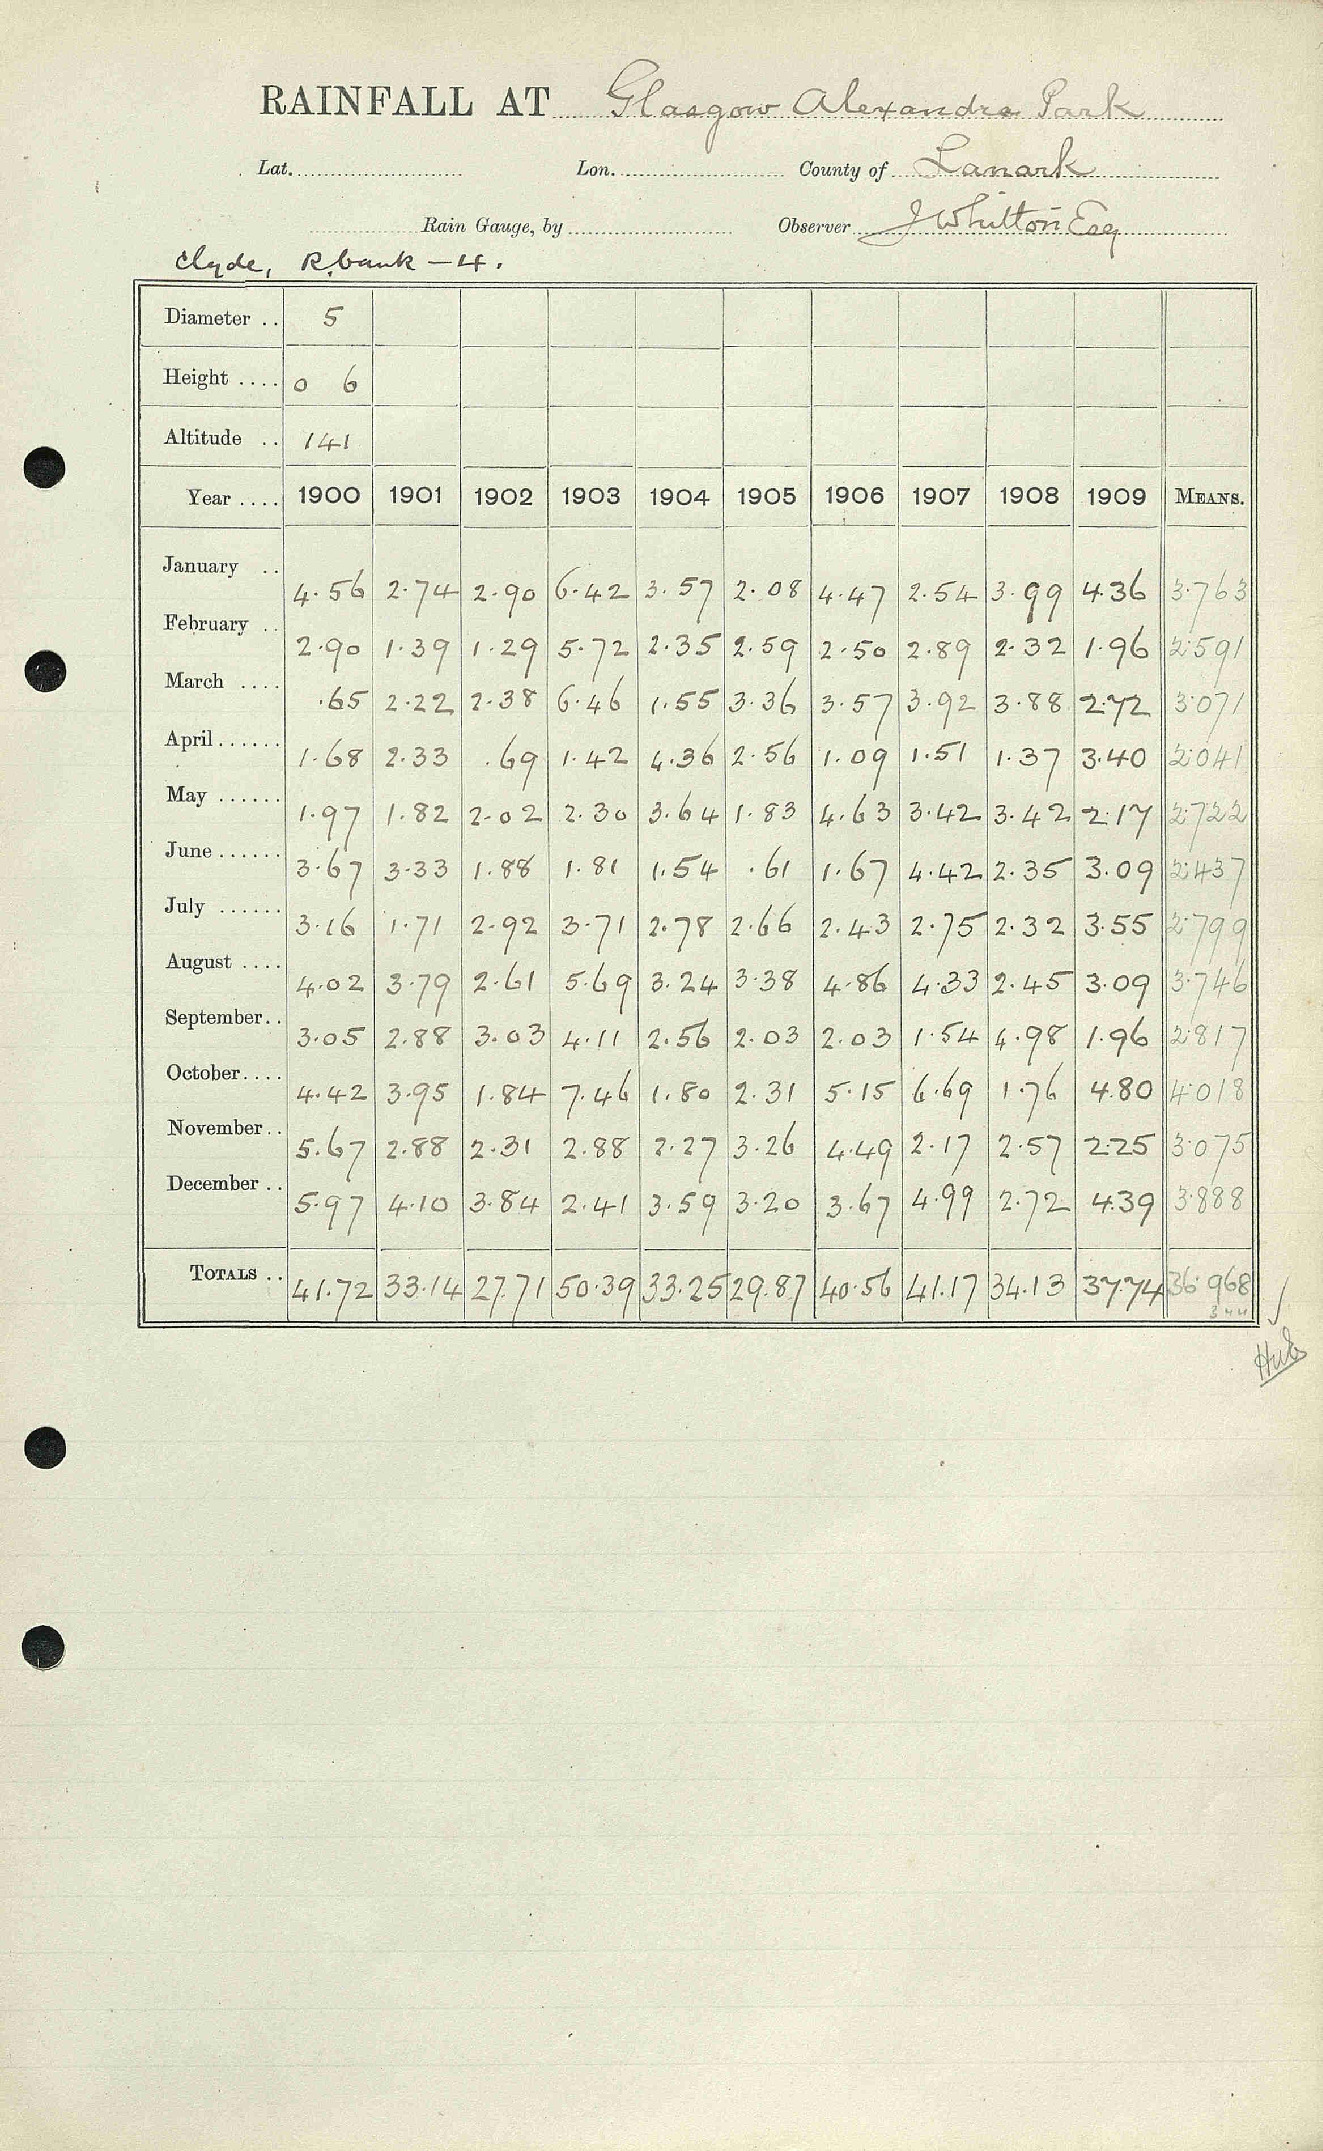 RAINFALL AT Glasgow Alexandra Park
Lat. Lon. County of Lanark
Rain Gauge, by Observer J Whitton Esq
Clyde, R. bank — 4.
Diameter .. 5
Height .... 0 6
Altitude .. 141
Year .... 1900 1901 1902 1903 1904 1905 1906 1907 1908 1909 MEANS.
January .. 4.56 2.74 2.90 6.42 3.57 2.08 4.47 2.54 3.99 4.36 3.763
February .. 2.90 1.39 1.29 5.72 2.35 2.59 2.50 2.89 2.32 1.96 2.591
March .... .65 2.22 2.38 6.46 1.55 3.36 3.57 3.92 3.88 2.72 3.071
April...... 1.68 2.33 .69 1.42 4.36 2.56 1.09 1.51 1.37 3.40 2.041
May ...... 1.97 1.82 2.02 2.30 3.64 1.83 4.63 3.42 3.42 2.17 2.722
June...... 3.67 3.33 1.88 1.81 1.54 .61 1.67 4.42 2.35 3.09 2.437
July ...... 3.16 1.71 2.92 3.71 2.78 2.66 2.43 2.75 2.32 3.55 2.799
August .... 4.02 3.79 2.61 5.69 3.24 3.38 4.86 4.33 2.45 3.09 3.746
September.. 3.05 2.88 3.03 4.11 2.56 2.03 2.03 1.54 4.98 1.96 2.817
October.... 4.42 3.95 1.84 7.46 1.80 2.31 5.15 6.69 1.76 4.80 4.018
November.. 5.67 2.88 2.31 2.88 2.27 3.26 4.49 2.17 2.57 2.25 3.075
December .. 5.97 4.10 3.84 2.41 3.59 3.20 3.67 4.99 2.72 4.39 3.888
TOTALS .. 41.72 33.14 27.71 50.39 33.25 29.87 40.56 41.17 34.13 37.74 36.968